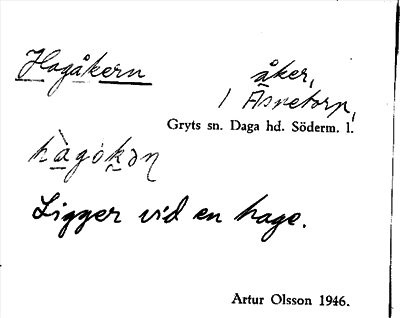 Hagåkern åker,
i Åsnetorp,
Gryts sn. Daga hd. Söderm. l.
hàgókən
Ligger vid en hage.
Artur Olsson 1946.